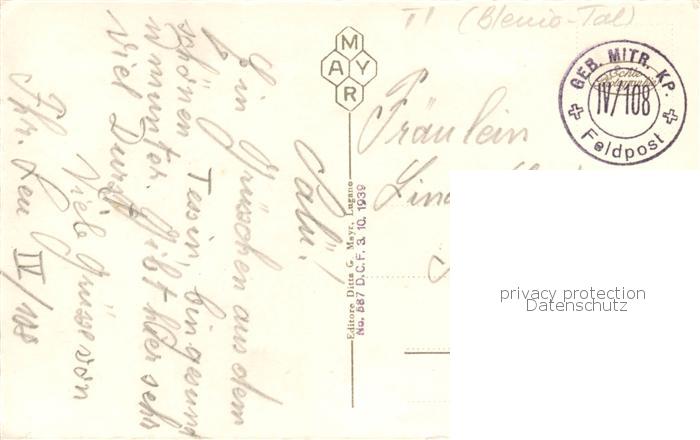 TI (Blenio-Tal)
MAYR
GEB. MITR. KP.
IV/108
Feldpost
Salü!
Ein Grüsschen aus dem
schönen Tessin bin gesund
u. munter. Gibt hier sehr
viel Durst
Viele Grüsse von
IV/108
Editore Ditta G. Mayr, Lugano
No. 587 D.C.F. 3. 10. 1939
Fräulein
privacy protection
Datenschutz